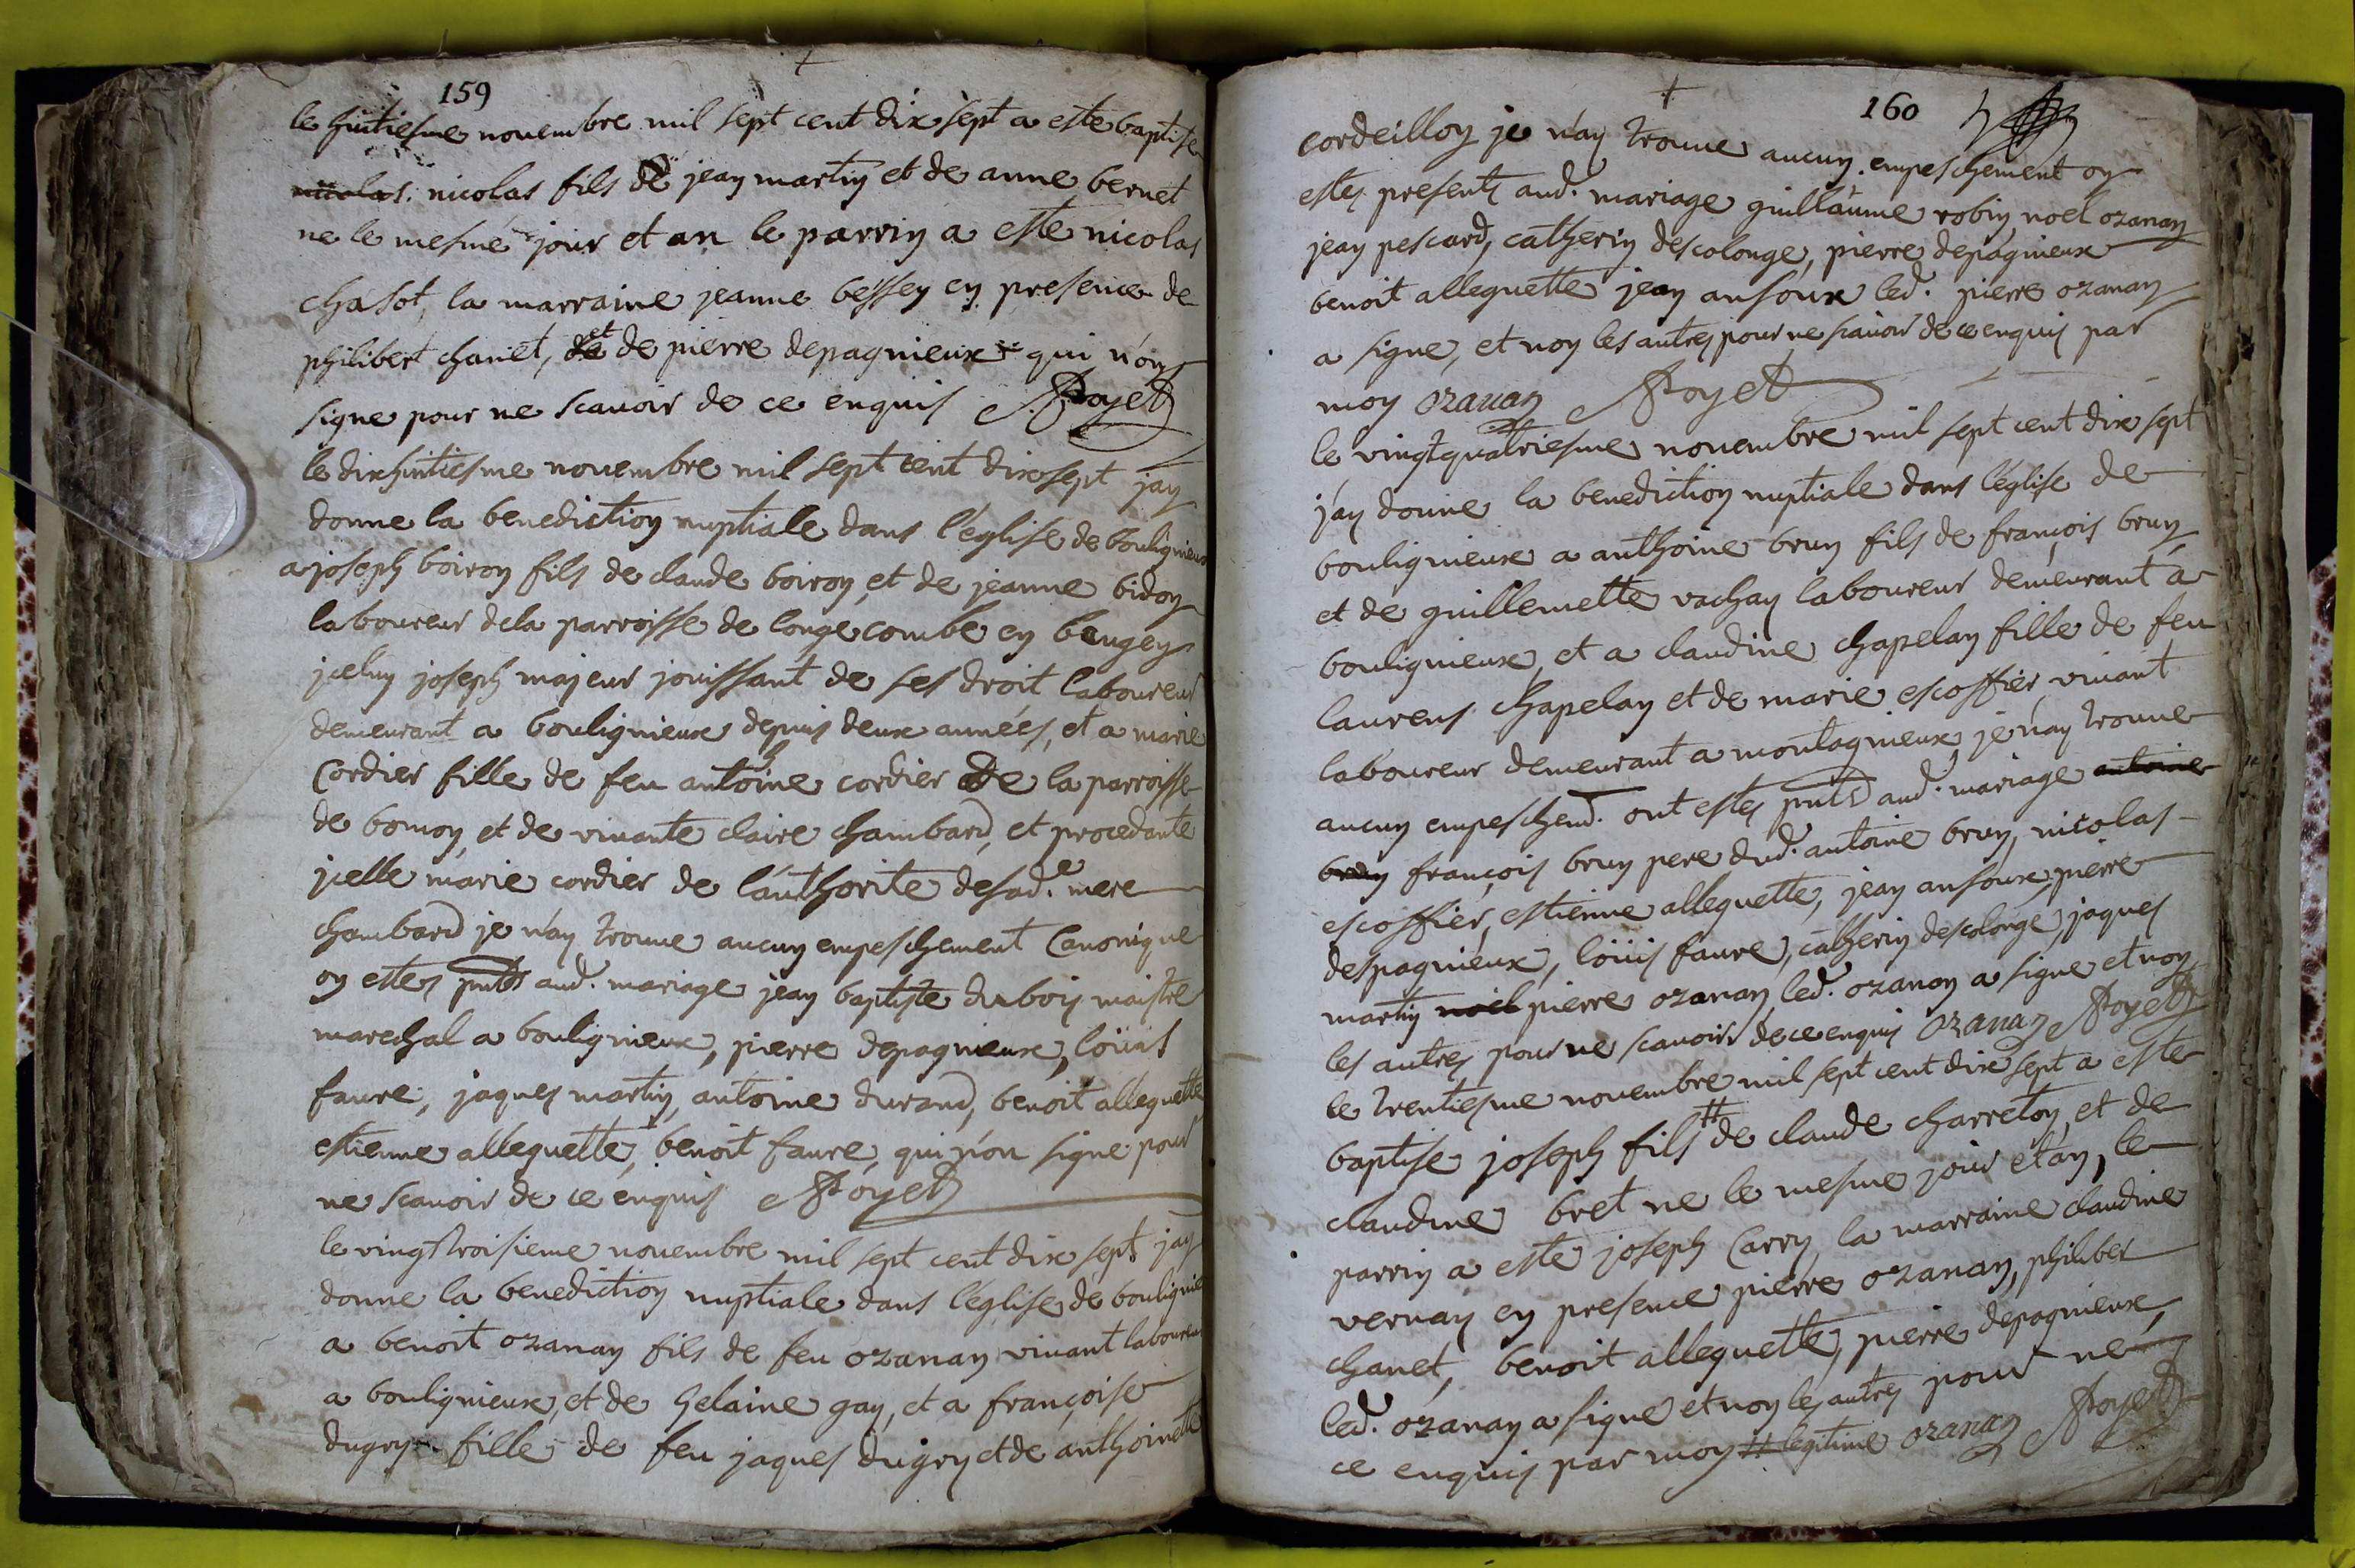 159
le huitiesme novembre mil sept cent dix sept a este baptise
nicolas. nicolas fils de jean martin et de anne bernet
ne le mesme jour et an le parrin a este nicolas
chasot, la marraine jeanne bessey en presence de
philibert chanet, et de pierre depagnieux qui n'on
signe pour ne scavoir de ce enquis Royet
le dixhuitiesme novembre mil sept cent dix sept jay
donne la benediction nuptiale dans l'eglise de boulignieux
a joseph boiron fils de claude boiron, et de jeanne bidon
laboureur dela parroisse de longecombe en beugey
jceluy joseph majeur jouissant de ses droit laboureur
demeurant a boulignieux depuis deux années, et a marie
Cordier fille de feu anthoine cordier de la parroisse
de et de vivante claire chambard, et procedante
jcelle marie cordier de l'authorite desad.e mere
chambard je n'ay trouve aucun empeschement Canonique
on estes pnts aud. mariage jean baptiste dubois maistre
marechal a boulignieux, pierre depagnieux, loüis
faure, jaques martin, antoine durand, benoit alleguette
estienne alleguette, benoit faure, qui n'on signe pour
ne scavoir de ce enquis Royet
le vingt troisieme novembre mil sept cent dix sept jay
donne la benediction nuptiale dans l'eglise de boulignie
a benoit ozanan fils de feu ozanan vivant laboureur
a boulignieux, et de helaine gay, et a françoise
dugry fille de feu jaques dugry et de anthoinette
160
cordeillon je n'ay trouve aucun empeschement on
estes presents aud. mariage guillaume robin noel ozanan
jean pescard, catherin descolonge, pierre depagnieux
benoit alleguette jean ansoux led. pierre ozanan
a signe, et non les autres pour ne scavoir de ce enquis par
moy ozanan Royet
le vingt quatriesme novembre mil sept cent dix sept
j'ay donne la benediction nuptiale dans l'eglise de
boulignieux a anthoine brun fils de françois brun
et de guillemette vachan laboureur demeurant a
boulignieux, et a claudine chapelan fille de feu
laurens chapelan et de marie escoffier vivant
laboureur demeurant a montagnieux, je n'ay trouve
aucun empeschend. ont estes pnts aud. mariage antoine
brun françois brun pere dud. antoine brun, nicolas
escoffier, estienne alleguette, jean ansoux, pierre
despagnieux, loüis faure, catherin descolonge, jaques
martin noel pierre ozanan, led. ozanan a signe et non
les autres pour ne scavoir de ce enquis ozanan Royet
le trentiesme novembre mil sept cent dix sept a este
baptise joseph fils # de claude charreton, et de
claudine bret ne le mesme jour et an, le
parrin a este joseph Carry, la marraine claudine
vernay en presence pierre ozanan, philiber
chanet, benoit alleguette, pierre depagnieux,
led. ozanan a signe et non les autres pour ne
ce enquis par moy # legitime ozanan Royet